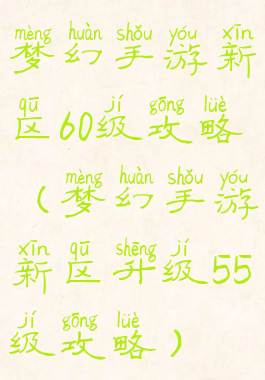 mèng huàn shǒu yóu xīn
梦幻手游新
qū jí gōng lüè
区60级攻略
mèng huàn shǒu yóu
（梦幻手游
xīn qū shēng jí
新区升级55
jí gōng lüè
级攻略）